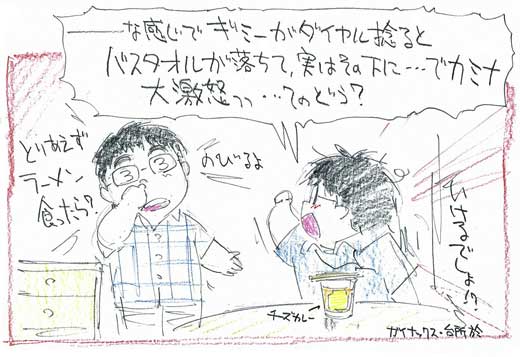 ――な感じで ギミーがダイヤル捻ると
バスタオルが落ちて、実はその下に…でカミナ
大激怒っっ …てのどう?
とりあえず
ラーメン
食ったら?
のびるよ
いけるでしょ!?
チーズカレー
ガイナックス・台所 於